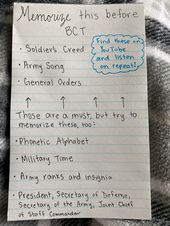 Memorize this before
BCT
• Soldier's Creed
• Army Song
• General Orders
Find these on
YouTube
and listen
on repeat!
Those are a must, but try to
memorize these, too!
• Phonetic Alphabet
• Military Time
• Army ranks and insignia
• President, Secretary of Defense,
Secretary of the Army, Joint Chief
of Staff Commander